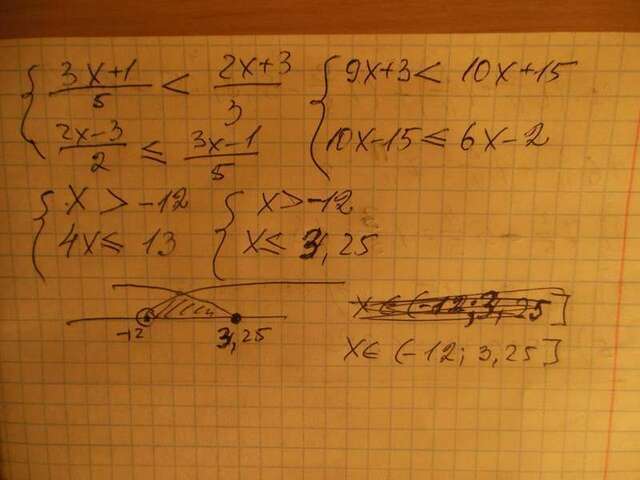 { (3x+1)/5 < (2x+3)/3 { 9x+3 < 10x+15
(2x-3)/2 ≤ (3x-1)/5 10x-15 ≤ 6x-2
{ x > -12 { x > -12
4x ≤ 13 x ≤ 3,25
-12 3,25
x∈(-12;3,25]
x∈(-12; 3,25]